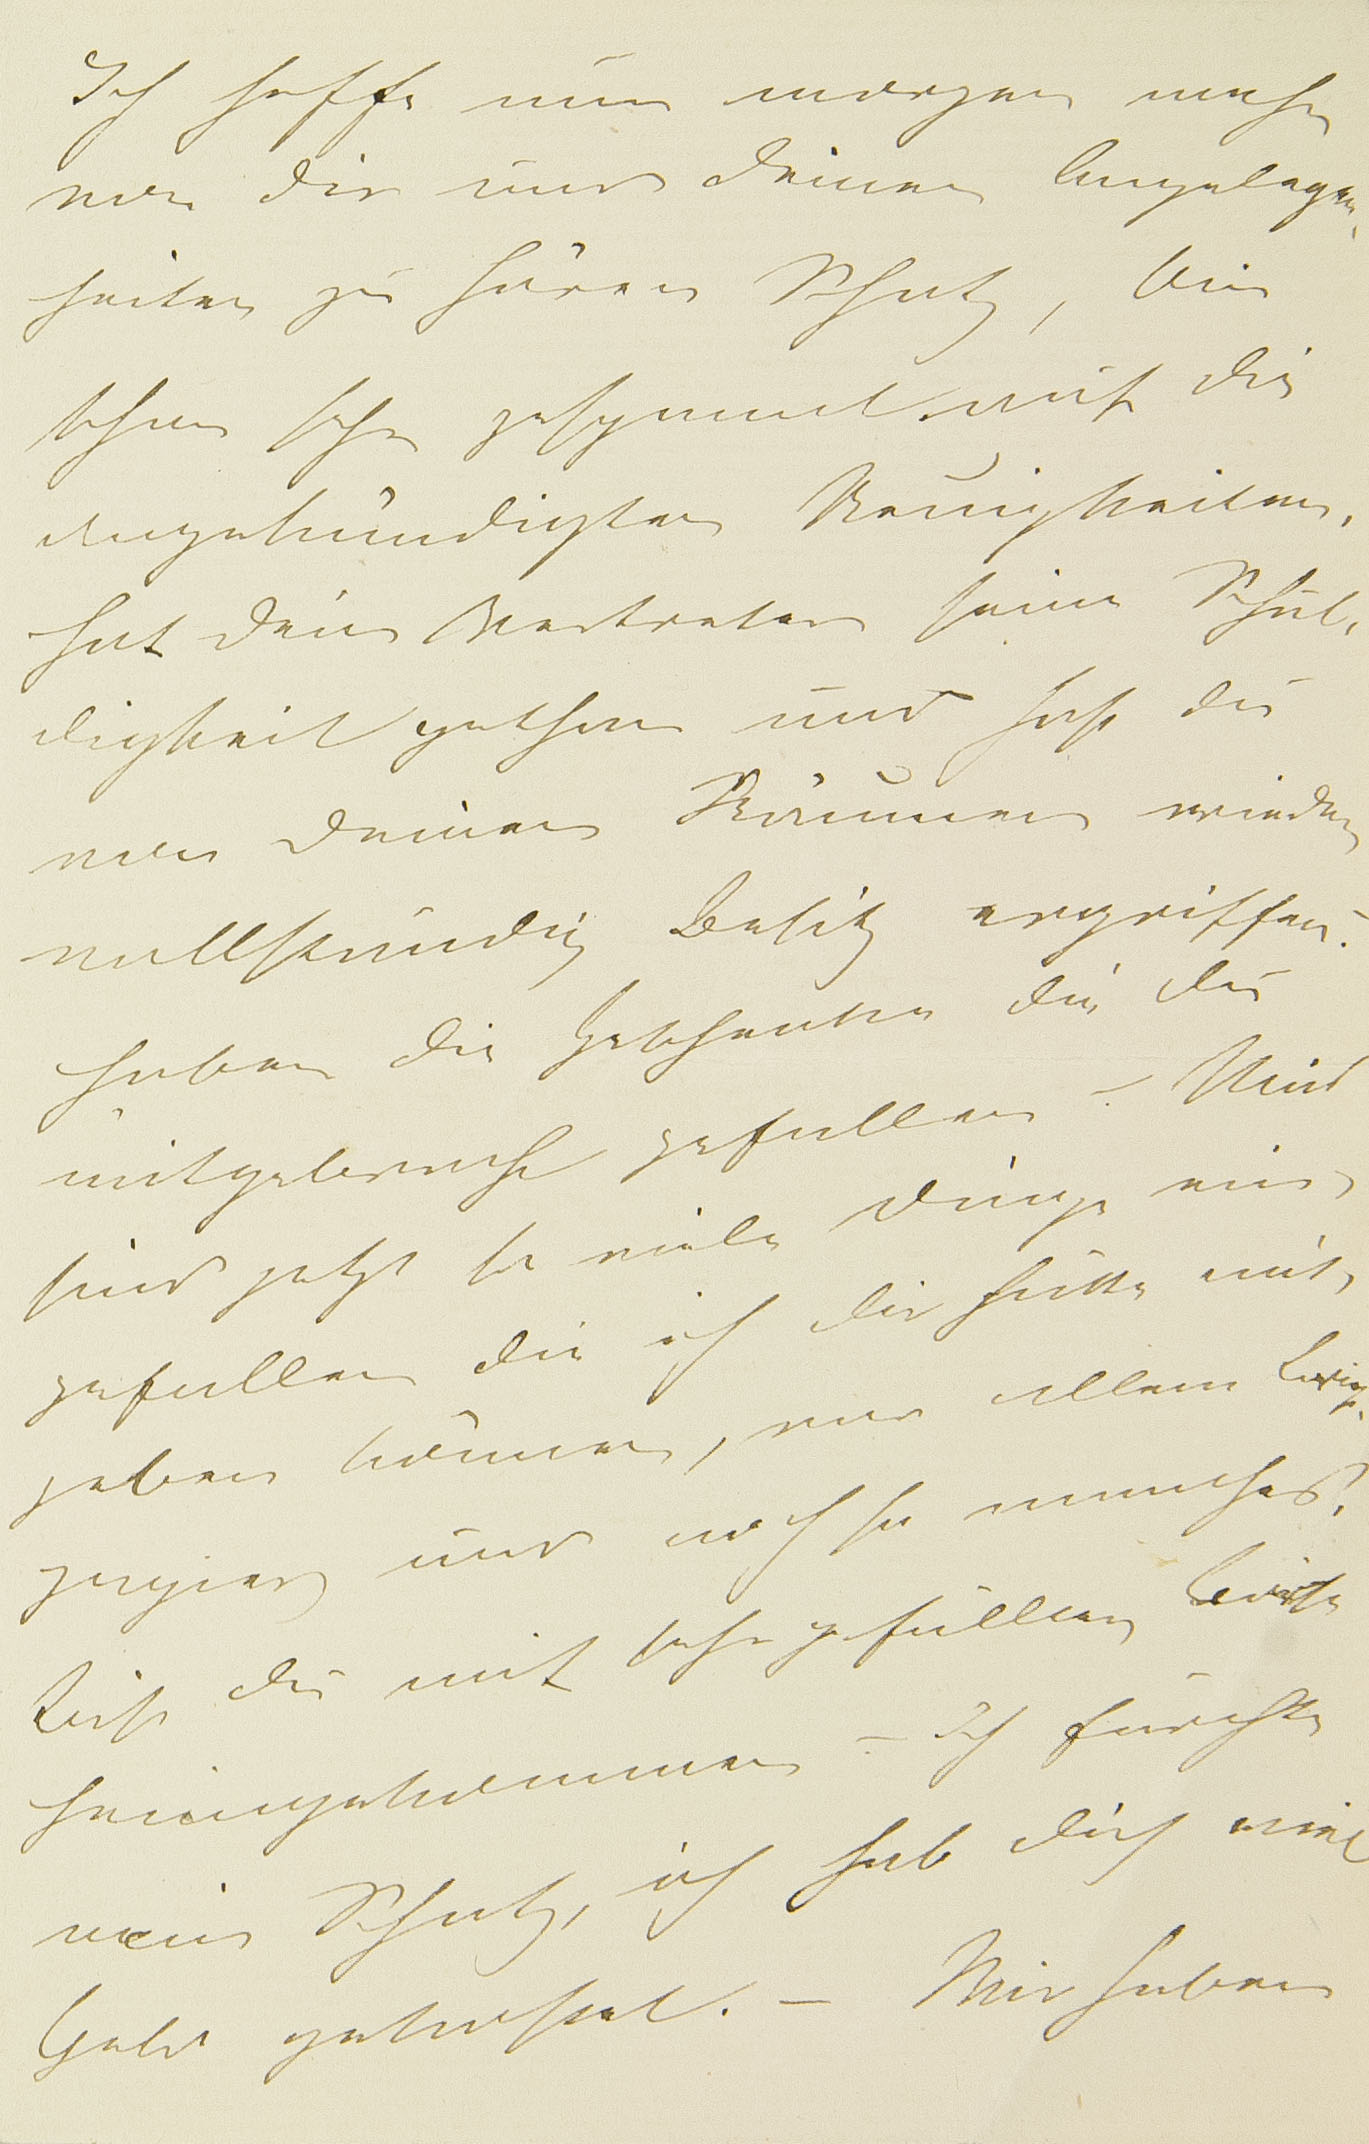 Ich hoffe nun morgen mehr
von dir und deinen Angelegen-
heiten zu hören Schatz, bin
schon sehr gespannt auf die
angekündigten Neuigkeiten,
hat dein Vertreter seine Schul-
digkeit gethan und hast du
von deinen Räumen wieder
vollständig Besitz ergriffen? –
haben die Geschenke die du
mitgebracht gefallen? – Uns
sind jetzt so viele Dinge ein-
gefallen die ich dir hätte mit-
geben können, vor allem Brief-
papier und noch so manches,
bist du mit sehr gefülltem
heimgekommen – ich fürchte
nein Schatz, ich hab dich viel
Geld gekostet. – Wir haben